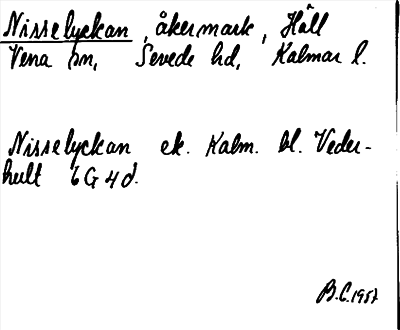 Nisselyckan, åkermark, Håll
Vena sn, Sevede hd, Kalmar l.
Nisselyckan ek. Kalm. bl. Veder-
hult 6G4d.
B.C. 1957